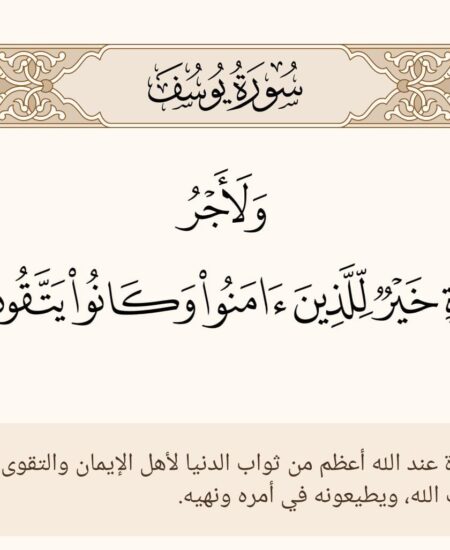 سُورَةُ يُوسُفَ
وَلَأَجْرُ
خَيْرٌ لِّلَّذِينَ ءَامَنُوا۟ وَكَانُوا۟ يَتَّقُو
عند الله أعظم من ثواب الدنيا لأهل الإيمان والتقوى
الله، ويطيعونه في أمره ونهيه.